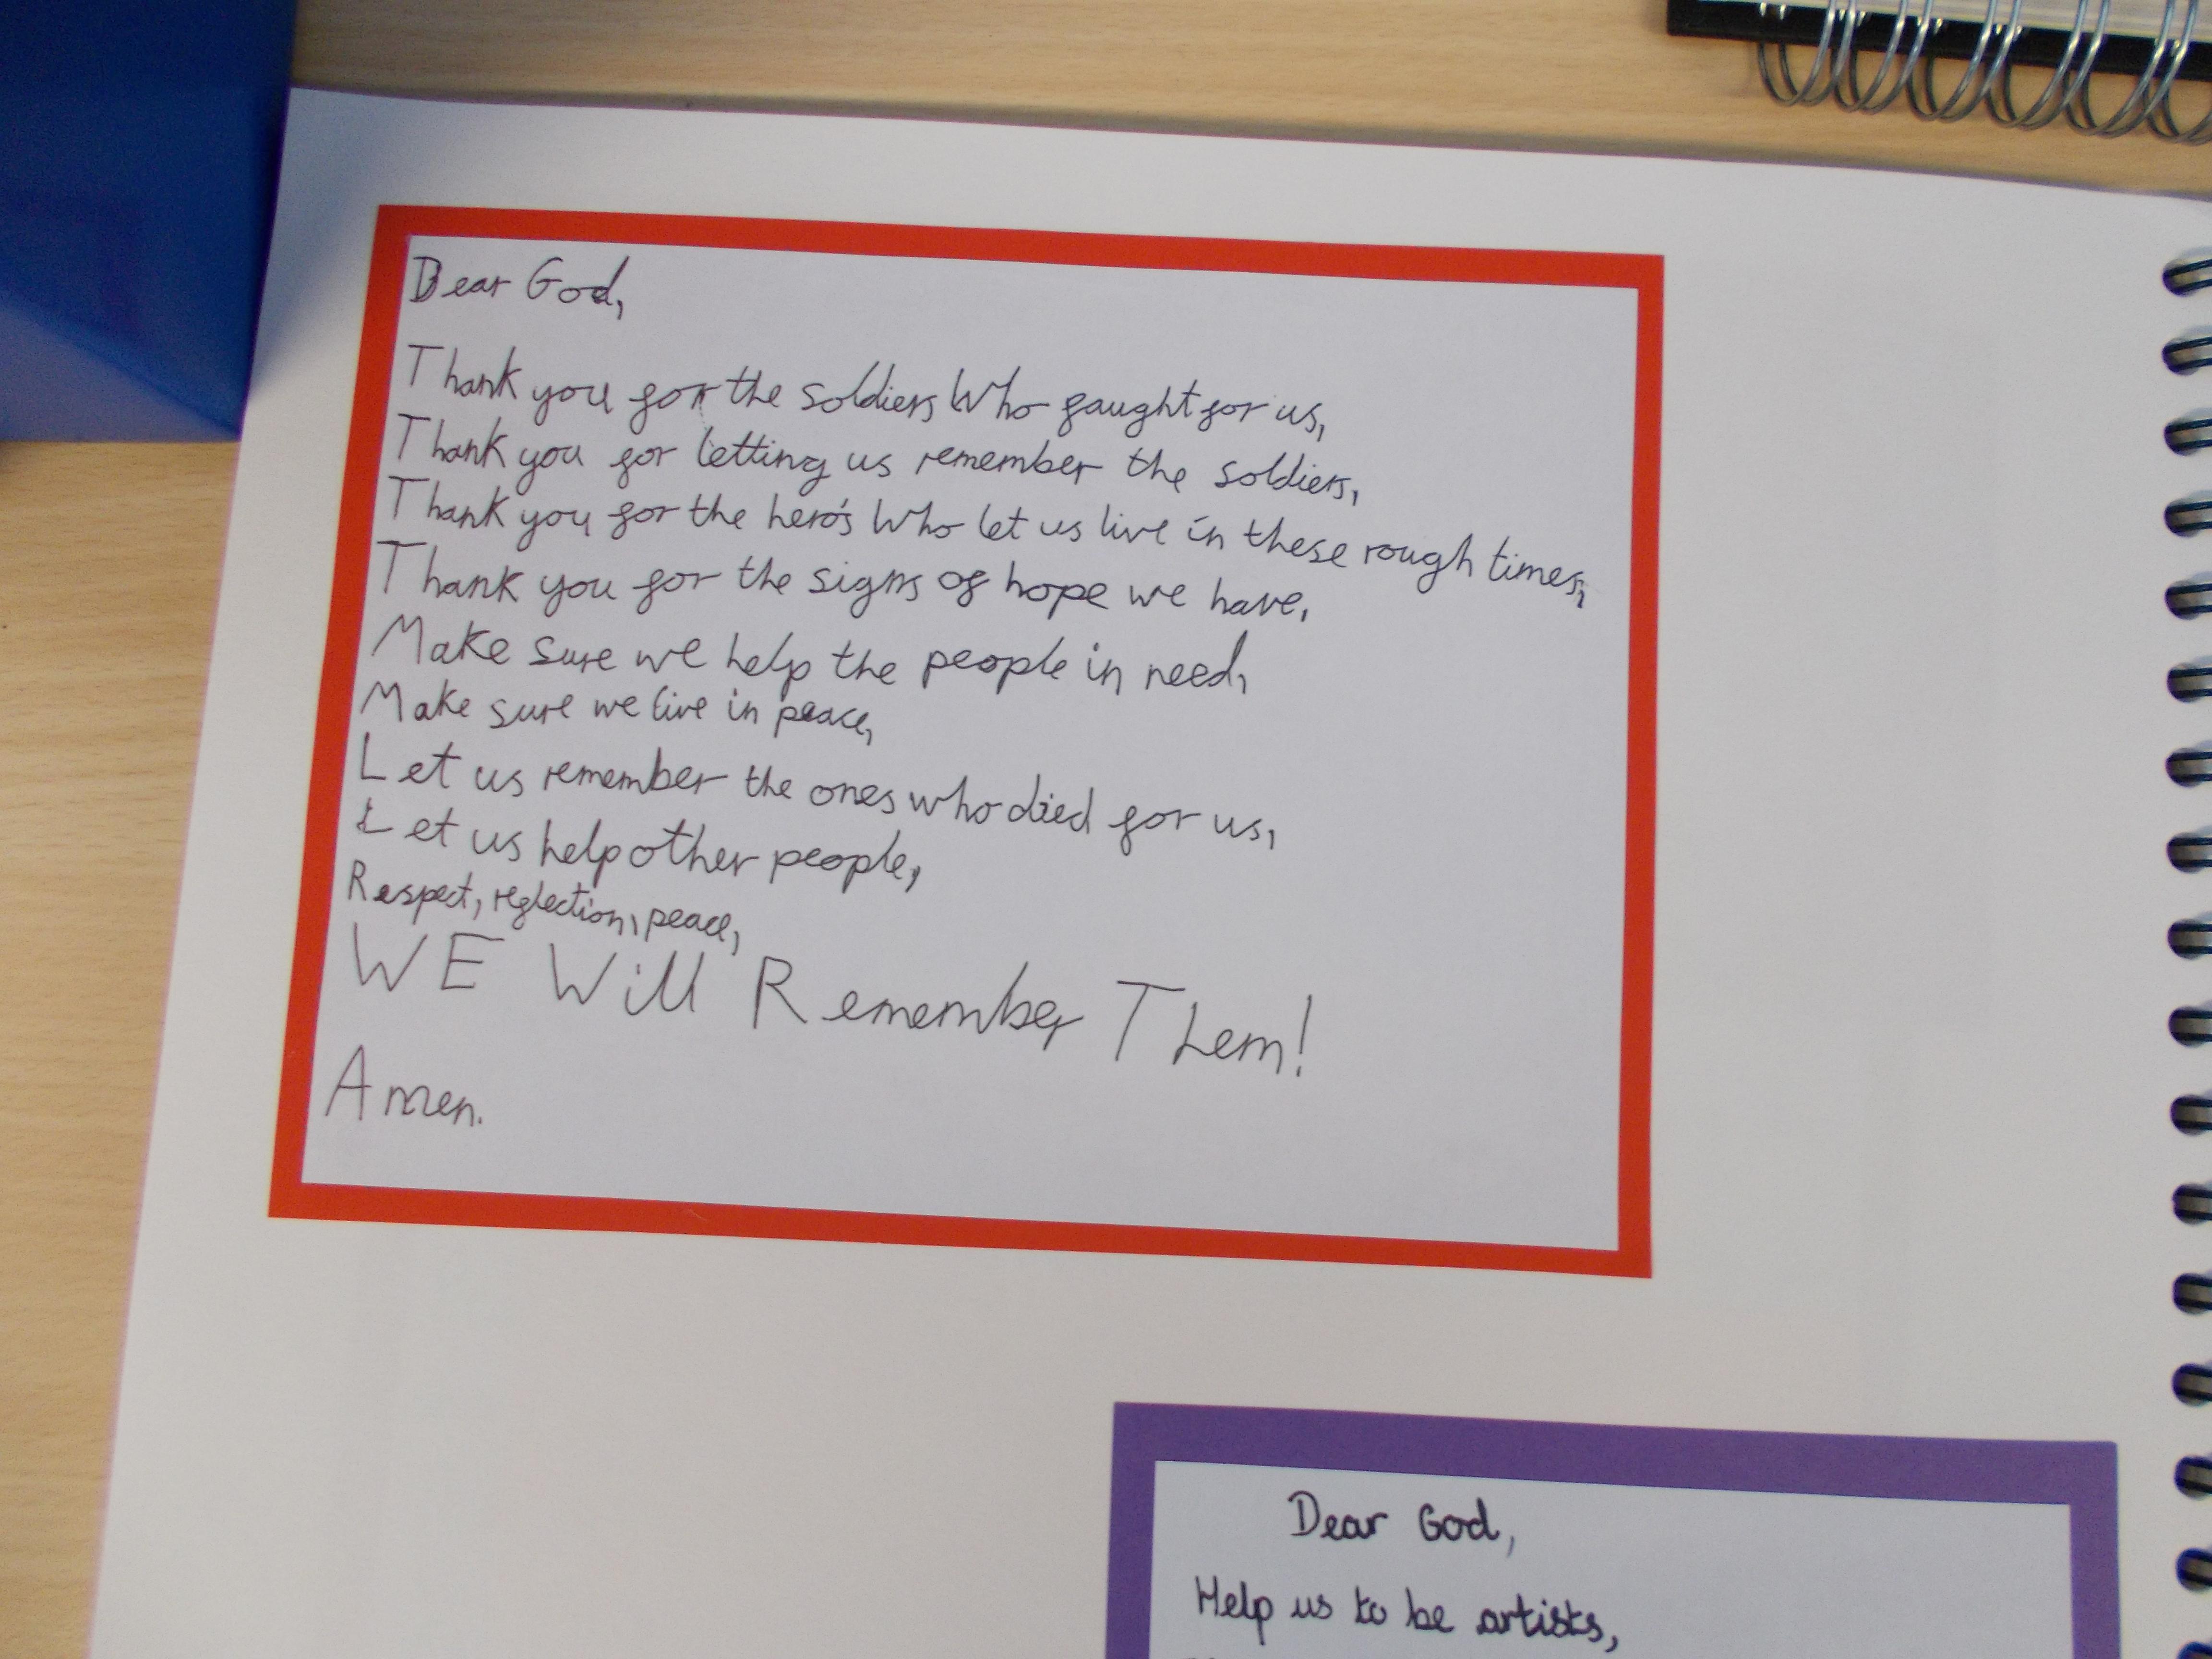 Dear God,
Thank you for the soldiers Who faught for us,
Thank you for letting us remember the soldiers,
Thank you for the hero's Who let us live in these rough times,
Thank you for the signs of hope we have,
Make sure we help the people in need,
Make sure we live in peace,
Let us remember the ones who died for us,
Let us help other people,
Respect, reflection, peace,
WE Will Remember Them!
Amen.
Dear God,
Help us to be artists,